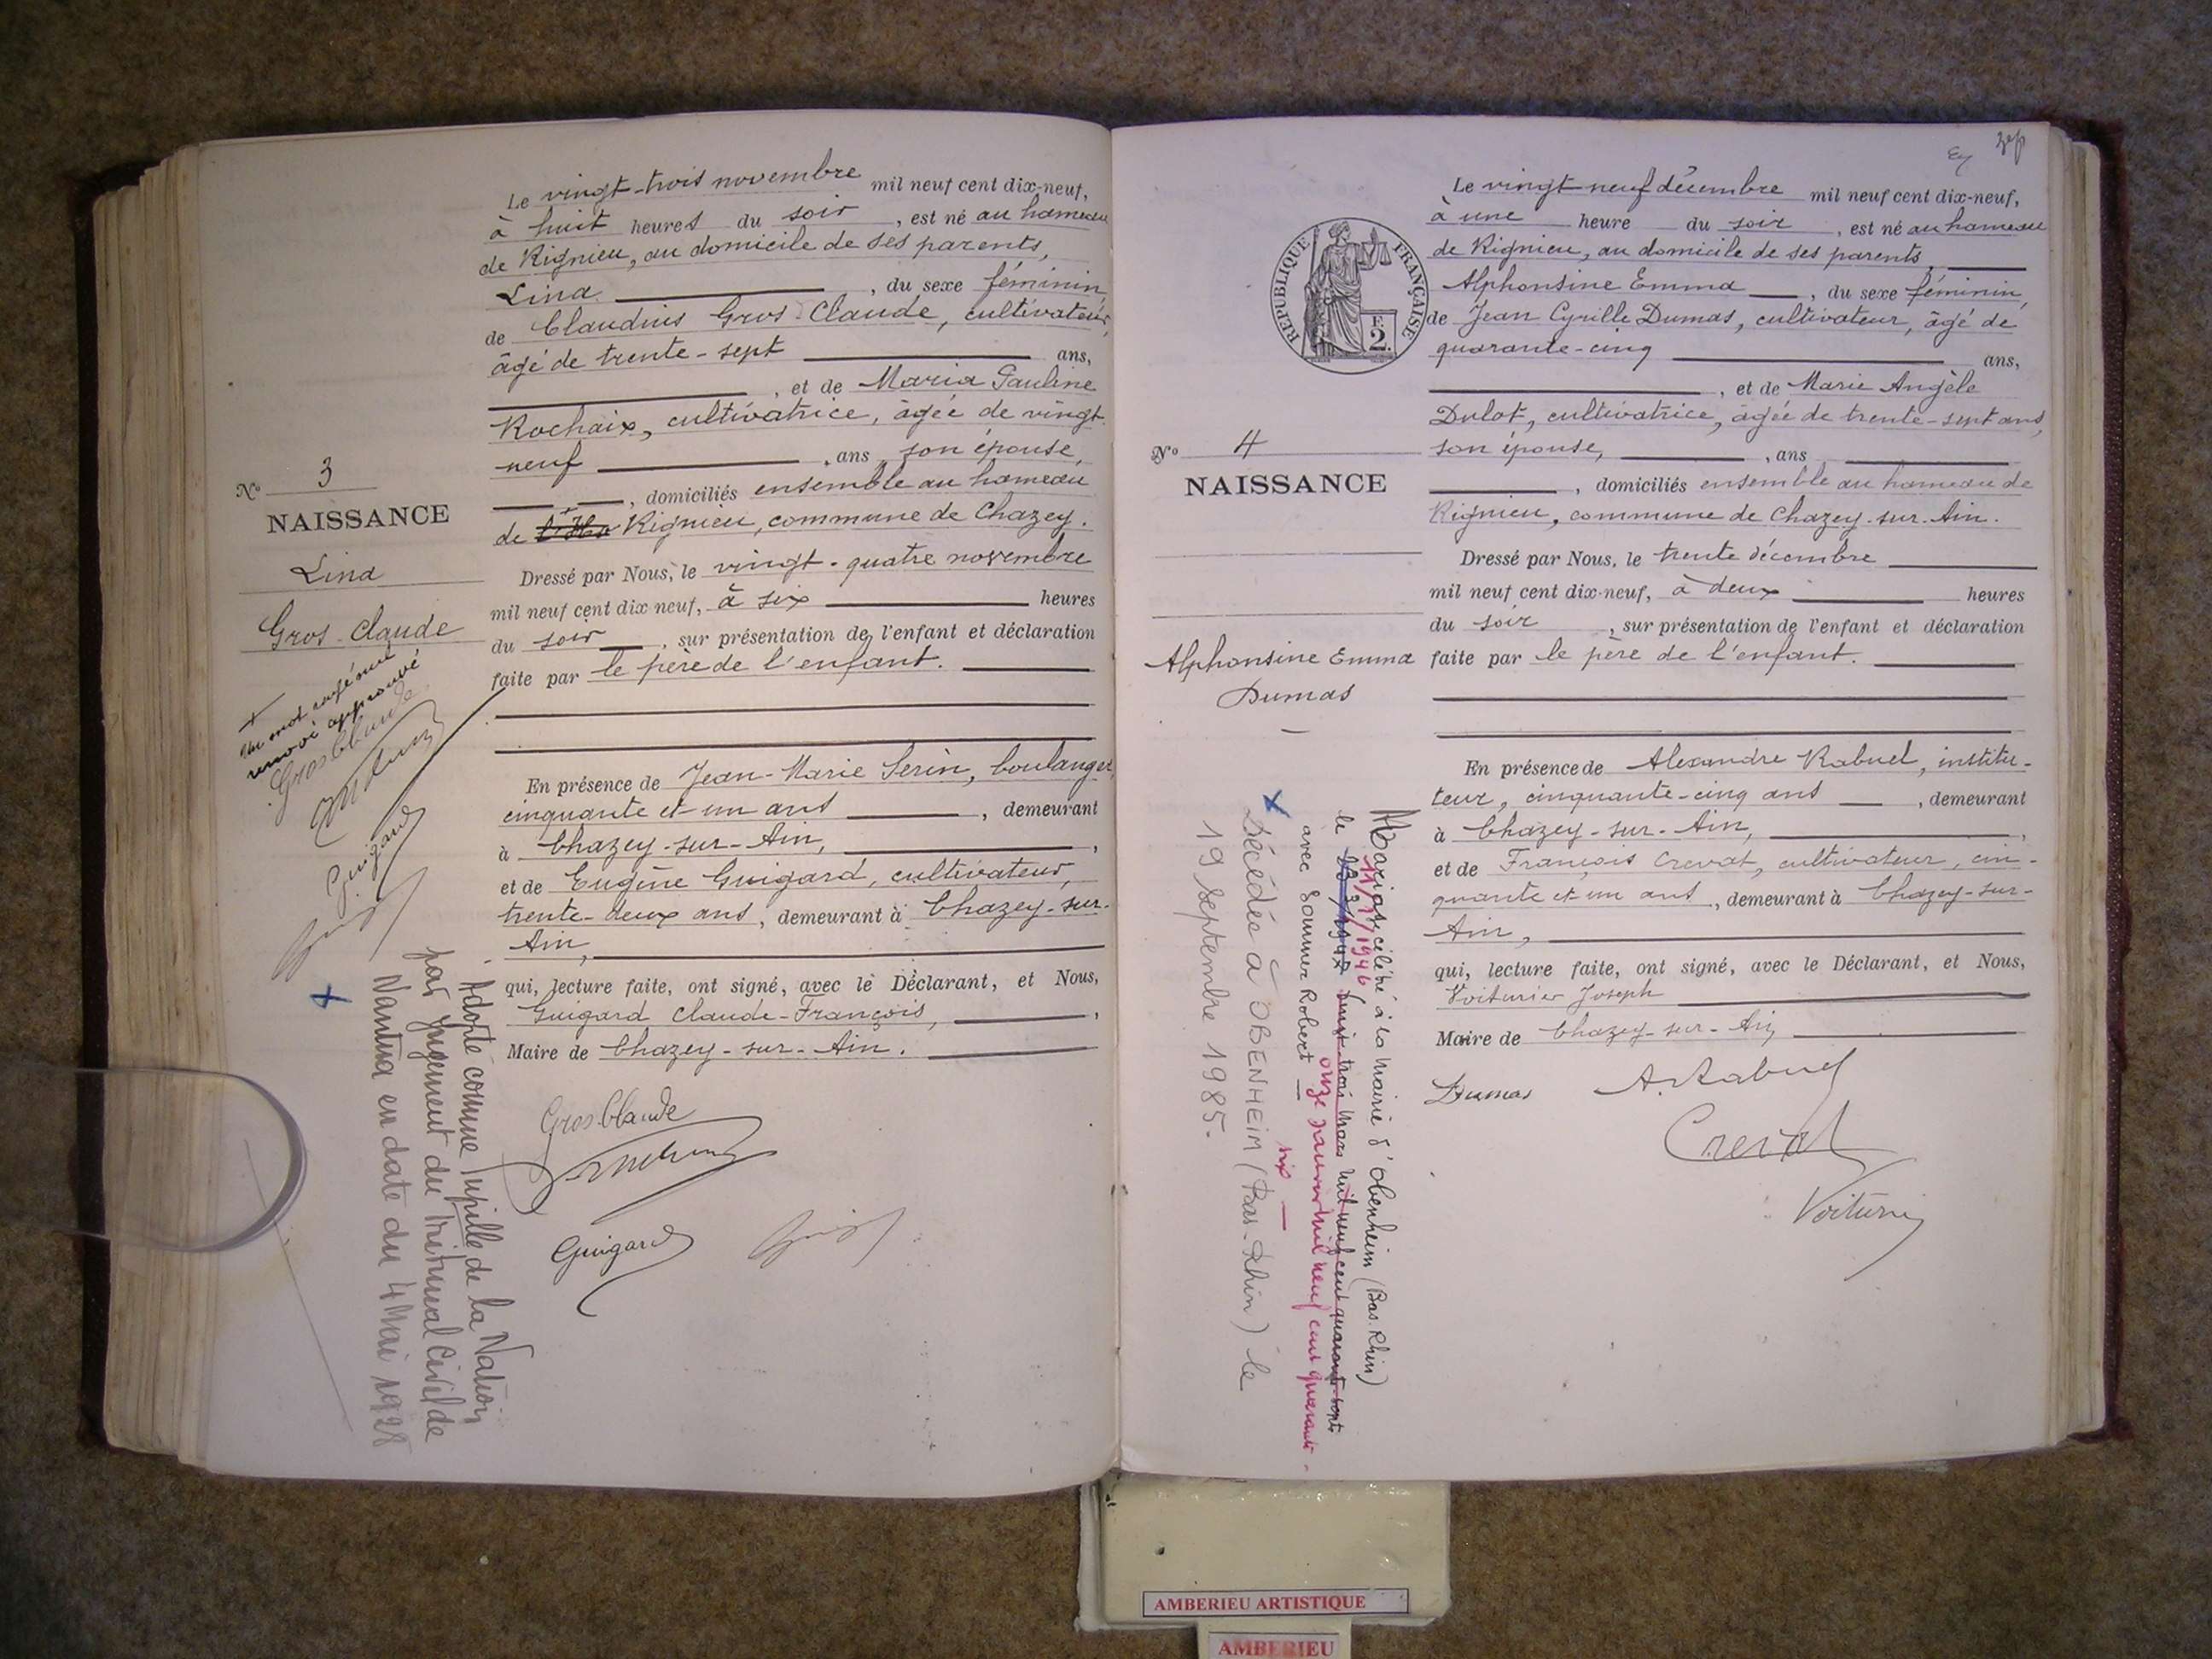 Le vingt-trois novembre mil neuf cent dix-neuf,
à huit heures du soir, est né au hameau
de Rignieu, au domicile de ses parents,
Lina, du sexe féminin,
de Claudius Gros-Claude, cultivateur,
âgé de trente-sept ans,
, et de Maria Pauline
Rochaix, cultivatrice, âgée de vingt-
neuf , ans, son épouse,
, domiciliés ensemble au hameau
de Rignieu, commune de Chazey.
Dressé par Nous, le vingt-quatre novembre
mil neuf cent dix neuf, à six heures
du soir, sur présentation de l'enfant et déclaration
faite par le père de l'enfant.
En présence de Jean-Marie Serin, boulanger,
cinquante et un ans, demeurant
à Chazey-sur-Ain,
et de Eugène Guigard, cultivateur,
trente-deux ans, demeurant à Chazey-sur-
Ain,
qui, lecture faite, ont signé, avec le Déclarant, et Nous,
Guigard Claude-François,
Maire de Chazey-sur-Ain.
Gros Claude
Guigard
No 3
NAISSANCE
Lina
Gros-Claude
+
Un mot rayé nul
renvoi approuvé
Gros Claude
Guigard
Adopté comme pupille de la Nation
par jugement du Tribunal Civil de
Nantua en date du 4 Mai 1928
Le vingt-neuf décembre mil neuf cent dix-neuf,
à une heure du soir, est né au hameau
de Rignieu, au domicile de ses parents
Alphonsine Emma, du sexe féminin,
de Jean Cyrille Dumas, cultivateur, âgé de
quarante-cinq ans,
, et de Marie Angèle
Dulot, cultivatrice, âgée de trente-sept ans,
son épouse, , ans
, domiciliés ensemble au hameau de
Rignieu, commune de Chazey-sur-Ain.
Dressé par Nous, le trente décembre
mil neuf cent dix-neuf, à deux heures
du soir, sur présentation de l'enfant et déclaration
faite par le père de l'enfant.
En présence de Alexandre Rabuel, institu-
teur, cinquante-cinq ans, demeurant
à Chazey-sur-Ain,
et de François Crevat, cultivateur, cin-
quante et un ans, demeurant à Chazey-sur-
Ain,
qui, lecture faite, ont signé, avec le Déclarant, et Nous,
Voiturier Joseph
Maire de Chazey-sur-Ain
Dumas A. Rabuel
Crevat
Voiturier
RÉPUBLIQUE FRANÇAISE
F. 2.
No 4
NAISSANCE
Alphonsine Emma
Dumas
Mariage célébré à la mairie d'Obenheim (Bas-Rhin)
11/1/1946
le huit trois mars mil neuf cent quarante-sept
onze janvier mil neuf cent quarante-
six
avec Sommer Robert
Décédée à OBENHEIM (Bas-Rhin) le
19 septembre 1985.
AMBERIEU ARTISTIQUE
AMBERIEU